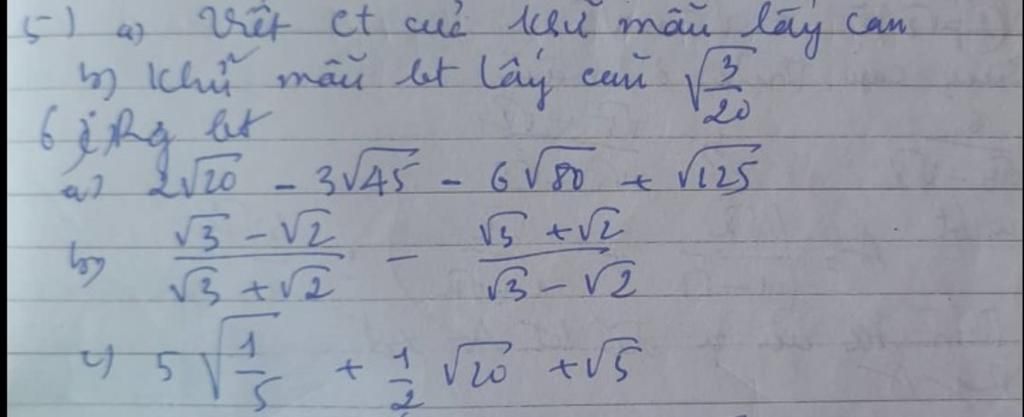 5) a) Viết ct của khử mẫu lấy căn
b) Khử mẫu bt lấy căn √(3/20)
6) Rg bt
a) 2√20 - 3√45 - 6√80 + √125
b) (√3 - √2)/(√3 + √2) - (√3 + √2)/(√3 - √2)
c) 5√(1/5) + 1/2 √20 + √5